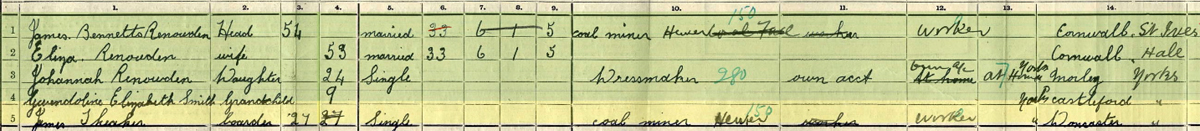 1. 2. 3. 4. 5. 6. 7. 8. 9. 10. 11. 12. 13. 14.
1 James Bennetts Renowden Head 54 married 33 6 1 5 coal miner Hewer 150 worker Worker Cornwall St Ives
2 Eliza Renowden wife 53 married 33 6 1 5 Cornwall Hale
3 Johannah Renowden Daughter 24 Single Dressmaker 280 own acct At home at Home Yorks Morley Yorks
4 Gwendoline Elizabeth Smith Grandchild 9 Yorks Castleford "
5 James Theaker boarder 27 27 Single coal miner Hewer 150 worker Worker " Worcester "